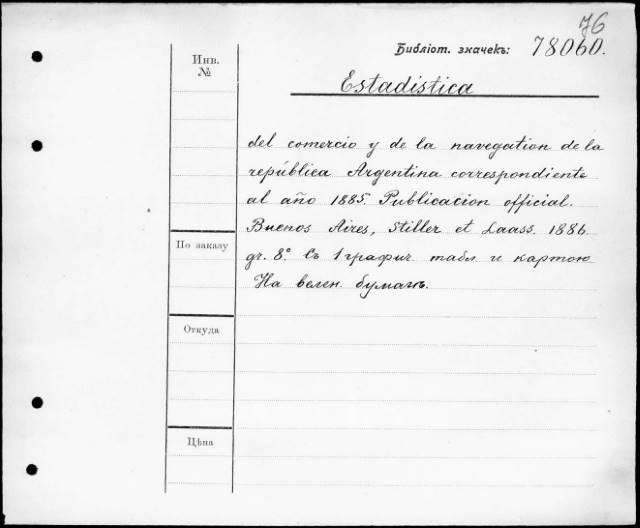 76
Библіот. значекъ: 78060.
Инв.
№
Estadistica
del comercio y de la navegation de la
república Argentina correspondiente
al año 1885. Publicacion official.
Buenos Aires, Stiller et Laass. 1886.
gr. 8° Съ 1 графич. табл. и картою
На велен. бумагѣ.
По заказу
Откуда
Цѣна